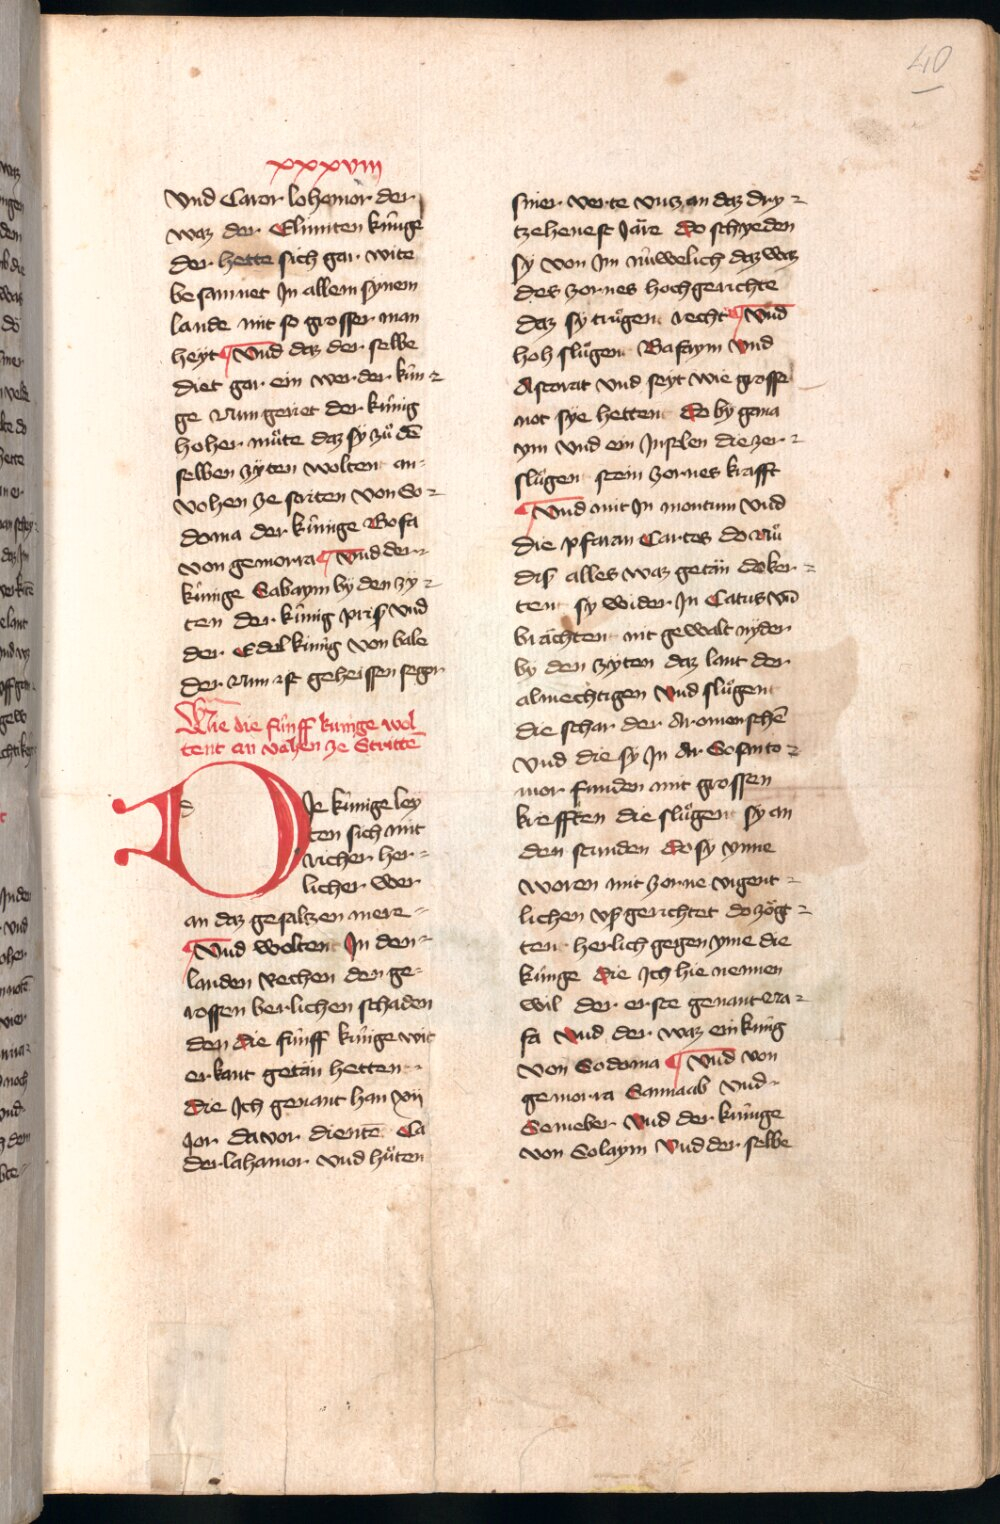 40
xxxviii
Vnd Caror lohomor der
waz der Elimiten kúnige
der hette sich gar wite
besamnet In allem synem
lande mit so grosser man
heyt Vnd daz der selbe
diet gar ein wer der kún
ge Nun geriet der kúnig
hoher můte daz sy zů dē
selben zyten wolten an
vohen ze striten von do
doma der kúnige Bosa
von gemorra Vnd der
kúnige Sabaym by den zy
ten der kúnig prisß vnd
der Edel kúnig von bale
der Nun ist geheissen segor
Wie die fúnff kunige wol
tent an vahen ze Strittē
DIe kúnige ley
ten sich mit
richer her
licher wer
an daz gesaltzen mere
Vnd wolten In den
landen Rechen den ge
rossen berlichen schaden
den die fúnff kúnige wit
erkant getän hetten
die Ich genant han xii
Jor da vor dientē Ca
der lahamor vnd hůten
siner verte vntz an daz dry
tzehenest Järe do schyeden
sy von Im núwelich daz waz
des zornes hochgerichte
daz sy trůgen recht Vnd
hoh slůgen Bafaym Vnd
Astorat vnd seyt wie grosse
not sye hetten do by gana
ym vnd ein Inselen die zer
slůgen sein zornes krafft
Vnd mit In montum vnd
die pfaran Cartes do nů
diß alles waz getän do ker
ten sy wider In Catus vn̄
brächten mit gewalt nyder
by den zyten daz lant der
almechtigen Vnd slůgent
die schar der Aromenschē
vnd die sy In Ar Sosmto
mor funden mit grossen
krefften die slůgen sy an
den stunden do sy ynne
woren mit zorne vigent
lichen vf gerichtet do zögt
ten herlich gegen yme die
kúnge die Ich hie nennen
wil der erste genant era
sa Vnd der waz ein kúng
von Sodoma Vnd von
gemorra Sannaab vnd
Semeber Vnd der kúnige
von Solaym Vnd der selbe